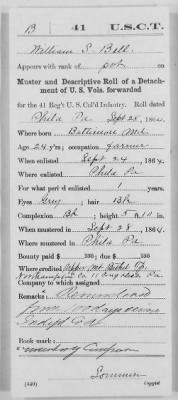 B 41 U.S.C.T.
William S. Bell
Appears with rank of pvt on
Muster and Descriptive Roll of a Detach-
ment of U. S. Vols. forwarded
for the 41 Reg't U. S. Col'd Infantry. Roll dated
Phila Pa Sept 28, 1864.
Where born Baltimore Md
Age 24 y'rs; occupation farmer
When enlisted Sept 24, 1864.
Where enlisted Phila Pa
For what period enlisted 1 years.
Eyes Grey; hair Blk
Complexion Blk; height 5 ft. 10 in.
When mustered in Sept 28, 1864.
Where mustered in Phila Pa
Bounty paid $ 100; due $ 100
Where credited Upper Mt Bethel Tp.
Northampton Co 11 Pa
Company to which assigned
Remarks: 
from 100 days service
Book mark:
Copyist